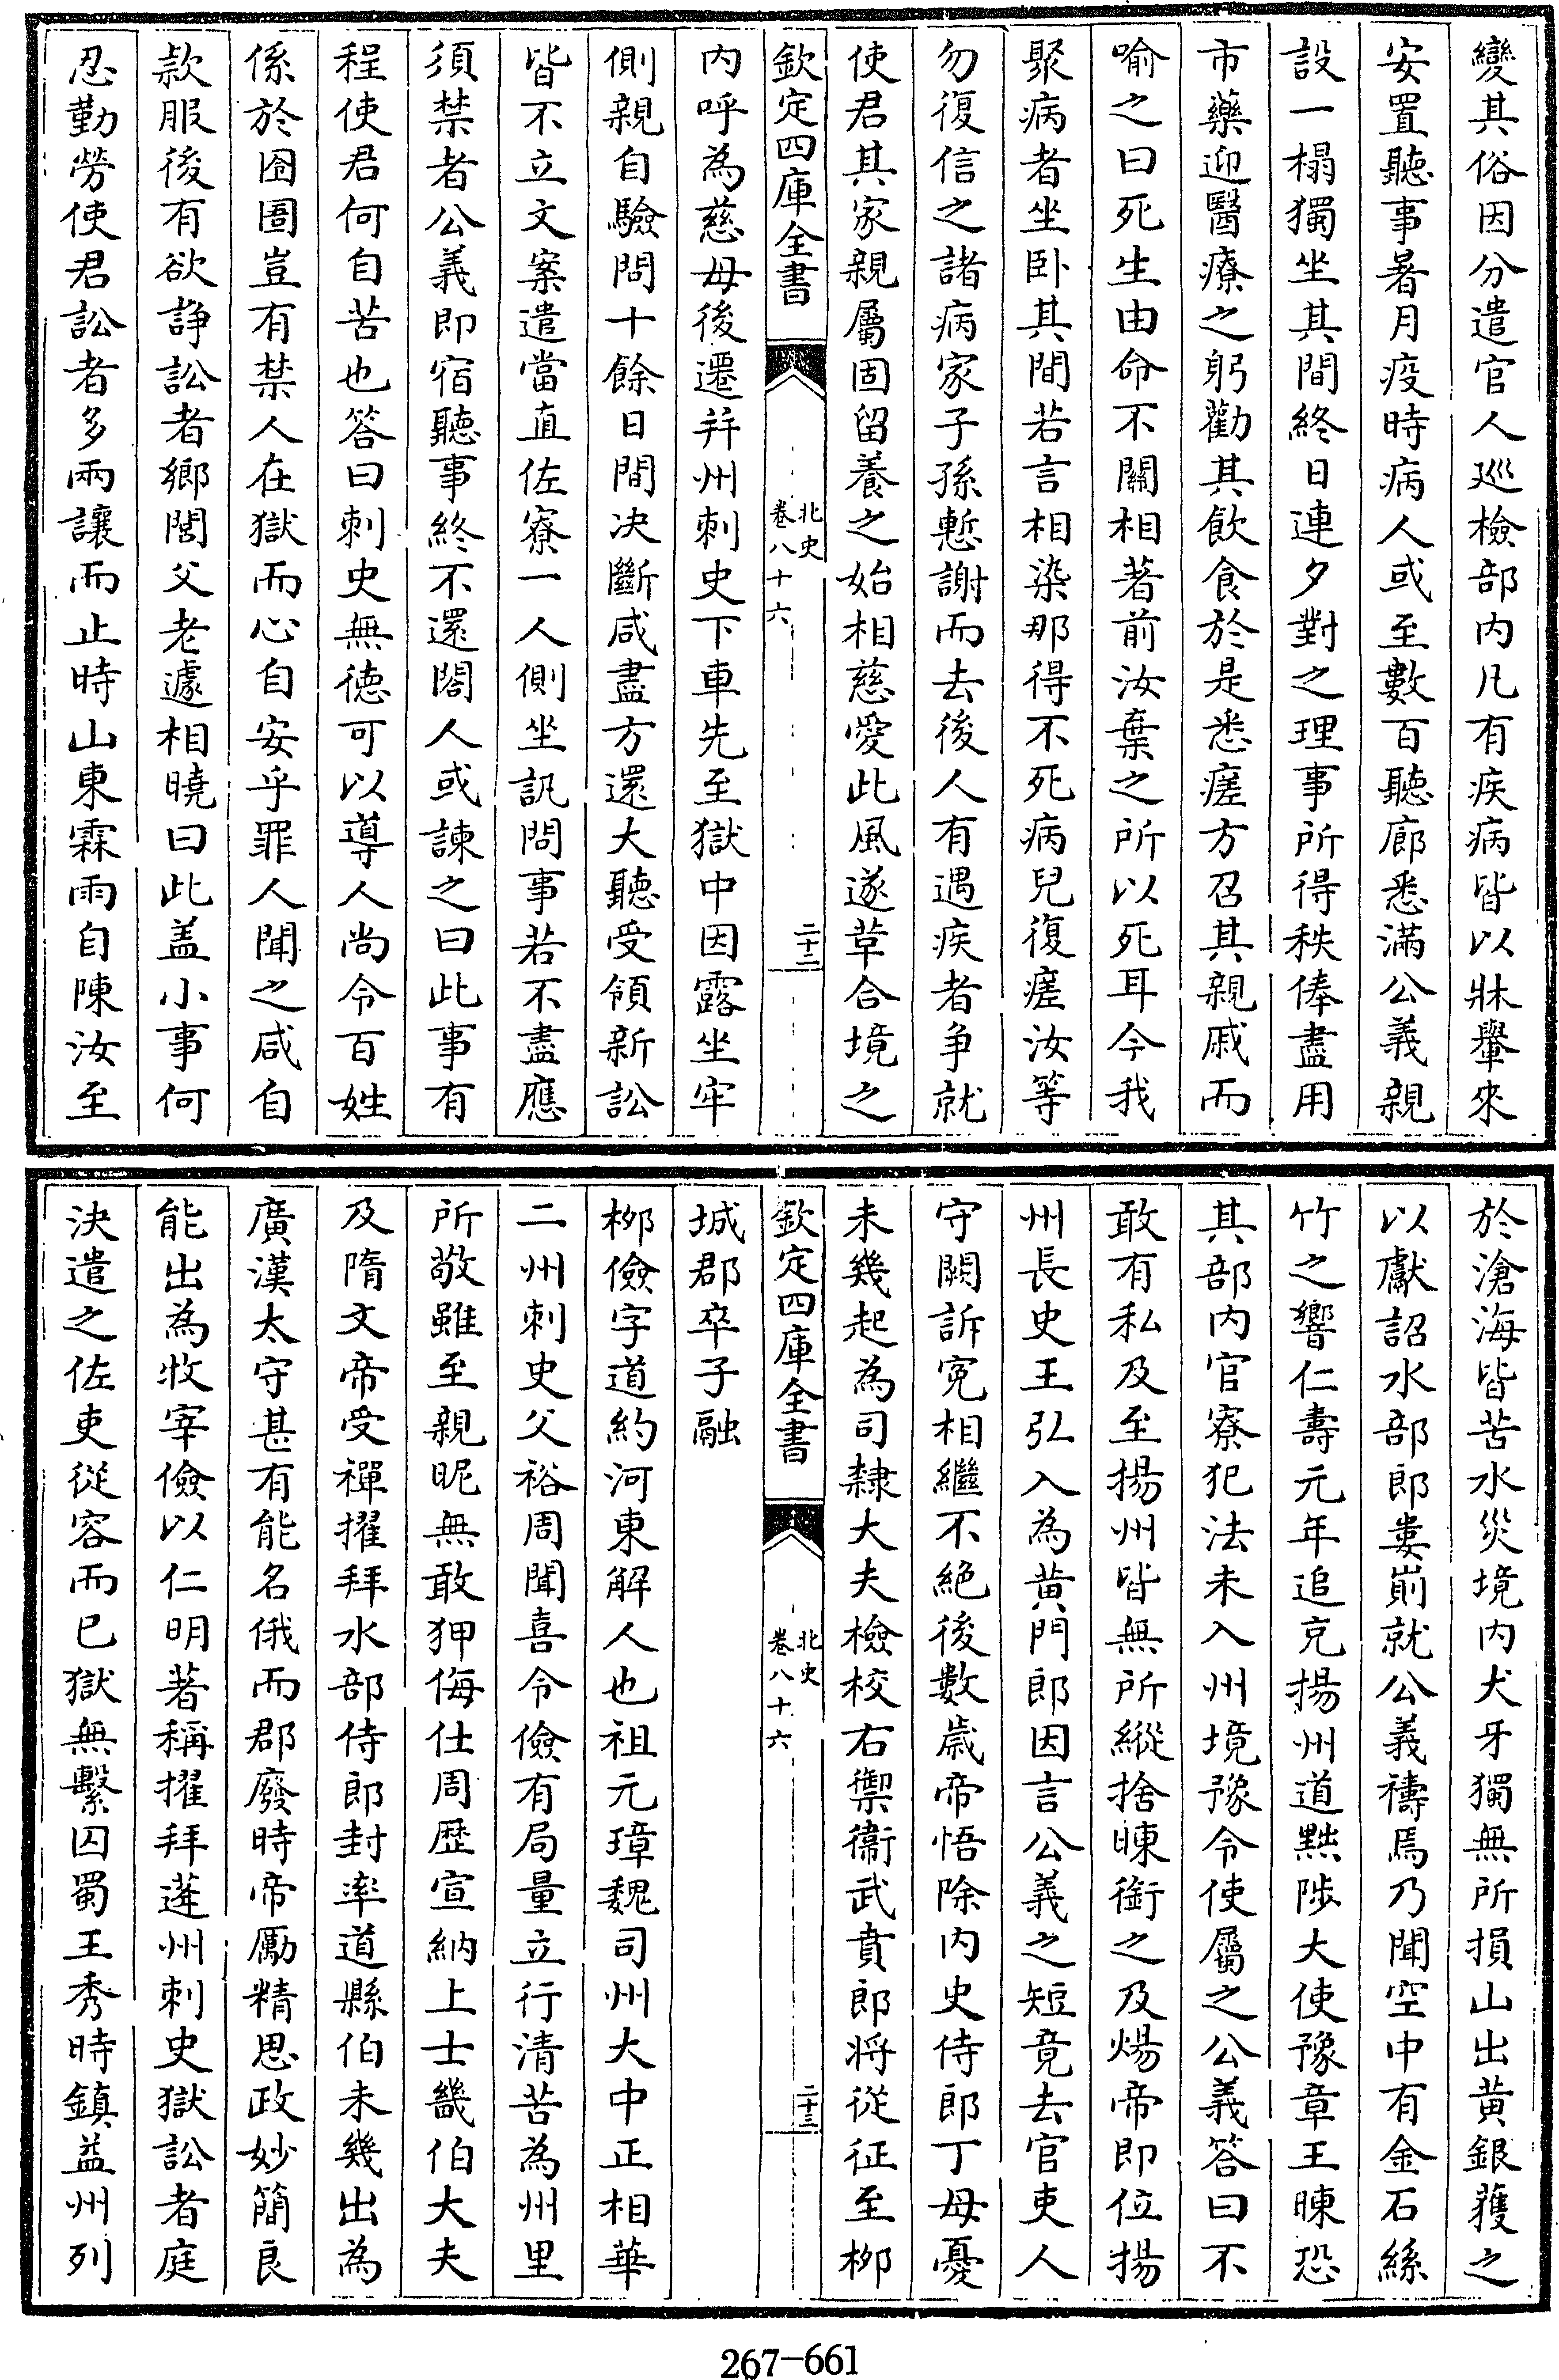 變其俗因分遣官人巡檢部内凡有疾病皆以牀轝來
安置聽事暑月疫時病人或至數百聽廊悉滿公義親
設一榻獨坐其間終日連夕對之理事所得秩俸盡用
市藥迎醫療之躬勸其飲食於是悉瘥方召其親戚而
喻之曰死生由命不關相著前汝棄之所以死耳今我
聚病者坐卧其間若言相染那得不死病兒復瘥汝等
勿復信之諸病家子孫慙謝而去後人有遇疾者争就
使君其家親屬固留養之始相慈愛此風遂革合境之
欽定四庫全書
北史
卷八十六
二十二
内呼為慈母後遷并州刺史下車先至獄中因露坐牢
側親自驗問十餘日間决斷咸盡方還大聽受領新訟
皆不立文案遣當直佐寮一人側坐訊問事若不盡應
須禁者公義即宿聽事終不還閤人或諫之曰此事有
程使君何自苦也答曰刺史無徳可以導人尚令百姓
係於囹圄豈有禁人在獄而心自安乎罪人聞之咸自
款服後有欲諍訟者鄉閭父老遽相曉曰此盖小事何
忍勤勞使君訟者多兩讓而止時山東霖雨自陳汝至
於滄海皆苦水災境内犬牙獨無所損山出黄銀獲之
以獻詔水部郎婁崱就公義禱焉乃聞空中有金石絲
竹之響仁壽元年追充揚州道黜陟大使豫章王暕恐
其部内官寮犯法未入州境豫令使屬之公義答曰不
敢有私及至揚州皆無所縱捨暕銜之及煬帝即位揚
州長史王弘入為黄門郎因言公義之短竟去官吏人
守闕訴寃相繼不絶後數歲帝悟除内史侍郎丁母憂
未幾起為司隸大夫檢校右禦衞武賁郎将從征至栁
欽定四庫全書
北史
卷八十六
二十三
城郡卒子融
栁儉字道約河東解人也祖元璋魏司州大中正相華
二州刺史父裕周聞喜令儉有局量立行清苦為州里
所敬雖至親昵無敢狎侮仕周歴宣納上士畿伯大夫
及隋文帝受禪擢拜水部侍郎封率道縣伯未幾出為
廣漢太守甚有能名俄而郡廢時帝勵精思政妙簡良
能出為牧宰儉以仁明著稱擢拜蓬州刺史獄訟者庭
決遣之佐吏從容而已獄無繫囚蜀王秀時鎮益州列
267-661